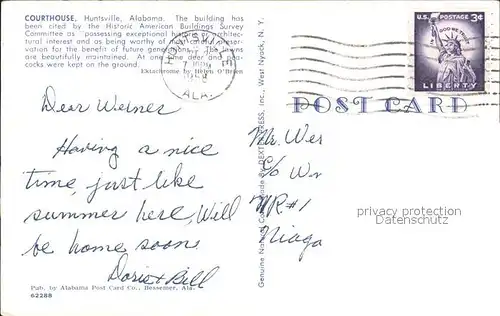 COURTHOUSE, Huntsville, Alabama. The building has
been cited by the Historic American Buildings Survey
Committee as "possessing exceptional historic or architec-
tural interest and as being worthy of most careful preser-
vation for the benefit of future generations." The lawns
are beautifully maintained. At one time deer and pea-
cocks were kept on the ground.
Ektachrome by Helen O'Brien
ALA.
U.S. POSTAGE 3¢
IN GOD WE TRUST
LIBERTY
POST CARD
Dear Werner
Having a nice
time, just like
summer here, Will
be home soon
Doris & Bill
Pub. by Alabama Post Card Co., Bessemer, Ala.
62288
Genuine Natural Color Made By DEXTER PRESS, Inc., West Nyack, N. Y.
Mr. Wer
C/o Wr
RR#1
Niaga
privacy protection
Datenschutz